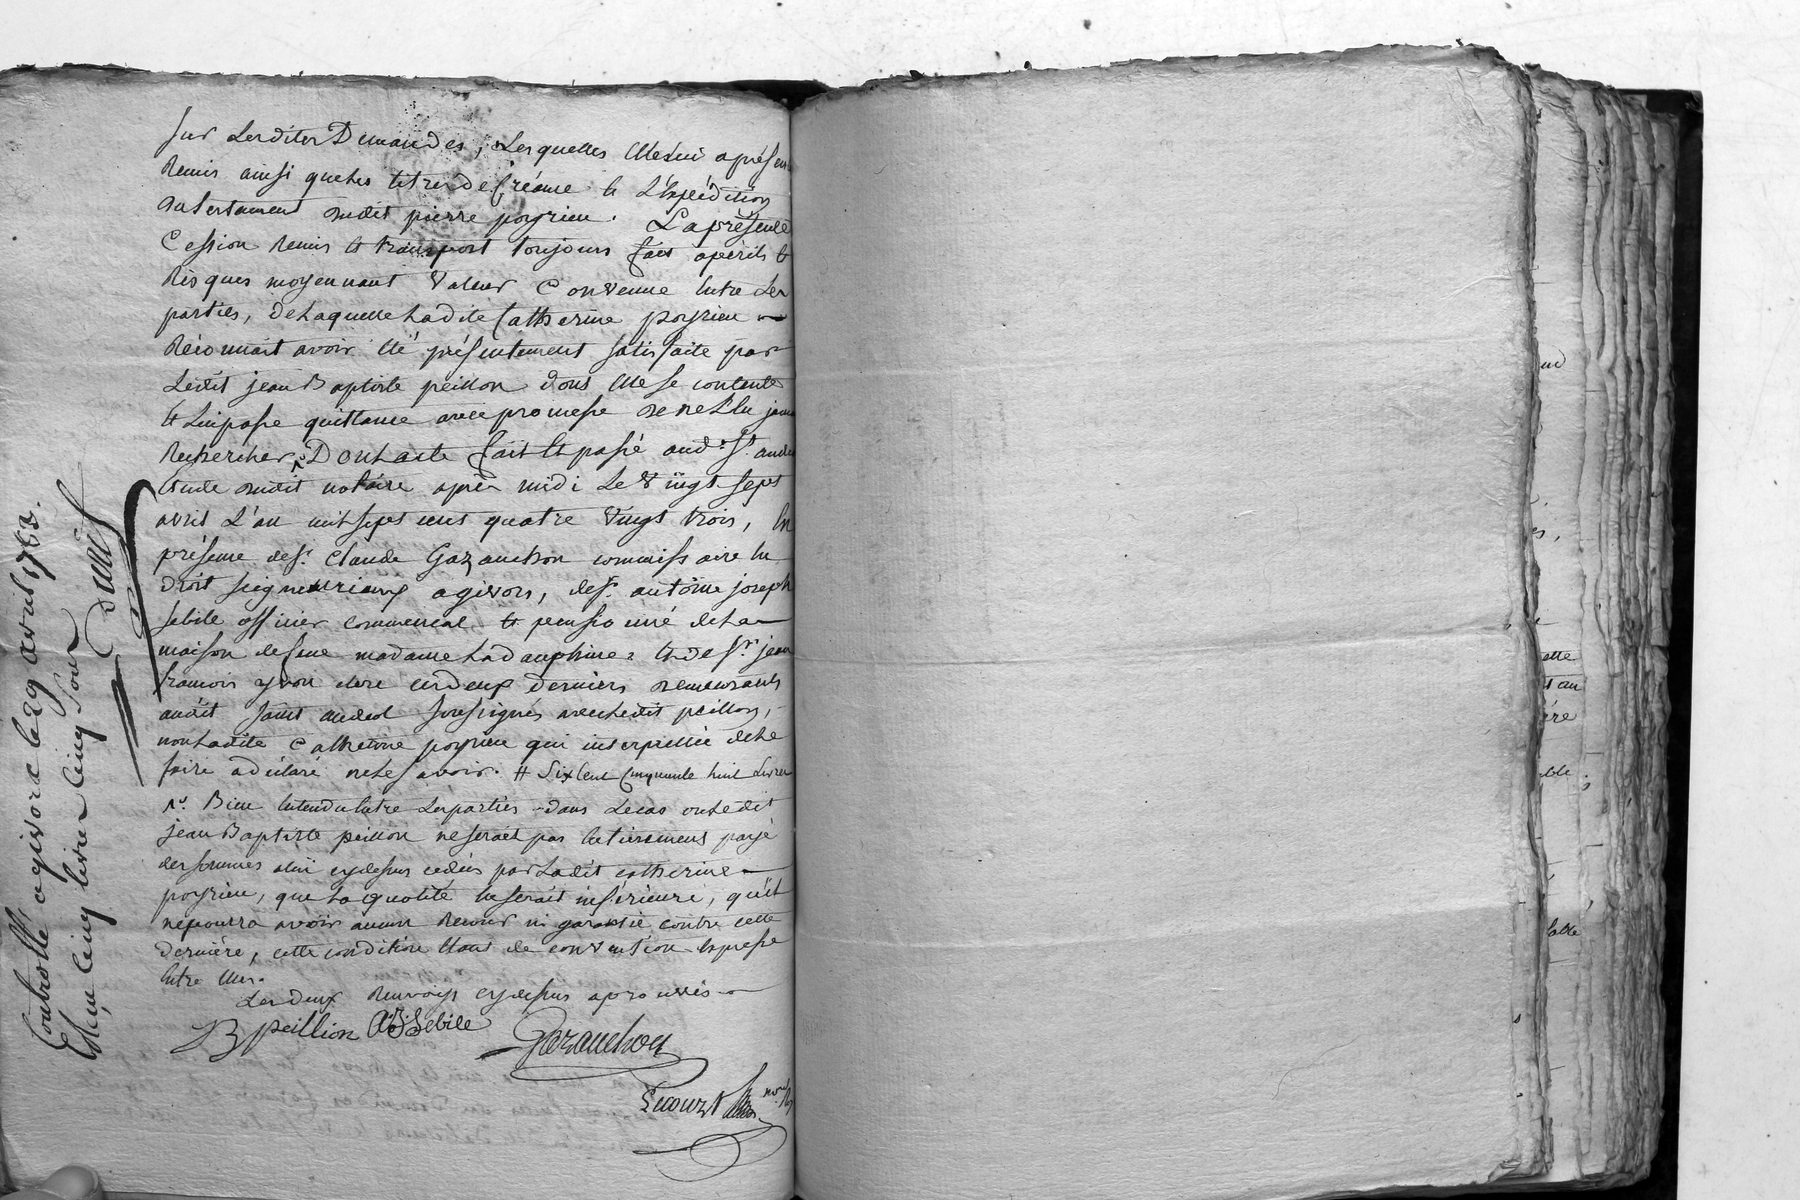 sur Lesdites Demandes, Lesquelles Elle lui a présen
Remis ainsi que les titres de Créance Et L'Expédition
du testament dudit pierre poyrieu. La présente
Cession Remis Et transport toujours fait a périls Et
Risques moyennant Valeur Convenue Entre Les
parties, de Laquelle Ladite Catherine poyrieu
Réconnait avoir Eté présentement satisfaite par
Ledit jean Baptiste peillon dont Elle se contente
Et Lui passe quittance avec promesse de ne L'En jamais
Rechercher, Dont acte fait Et passé aud. St. andeol
Etude dudit notaire après midi Le Vingt sept
avril L'an mil sept cens quatre Vingt trois, En
présence de sr. Claude Gazanchon commissaire En
Droit seigneuriaux a givors, de sr. antoine joseph
sebile officier commencal Et pensionné de La
maison de feue madame La dauphine, Et de sr. jean
francois yvon clerc ces deux Derniers demeurants
audit saint andeol soussignés avec Ledit peillon,
non Ladite Catherine poyrieu qui interpellée de Le
faire a déclaré ne Le savoir. # Six Cent Cinquante huit Livres
Bien Entendu Entre Les parties dans Le cas ou Ledit
jean Baptiste peillon ne serait pas Entierement payé
des sommes a lui cy dessus cedées par Ladit catherine
poyrieu, que La quotité En serait inférieure, qu'il
ne pourra avoir aucun Recours ni garantie contre cette
derniére, cette condition Etant de convention Expresse
Entre Elles.
Les deux Renvoys cy dessus aprouvés
B peillion A:J: Sebile
Gazanchon
Lecourt
Controllé a givors le 29 avril 1783.
Reçu cinq livres cinq sous